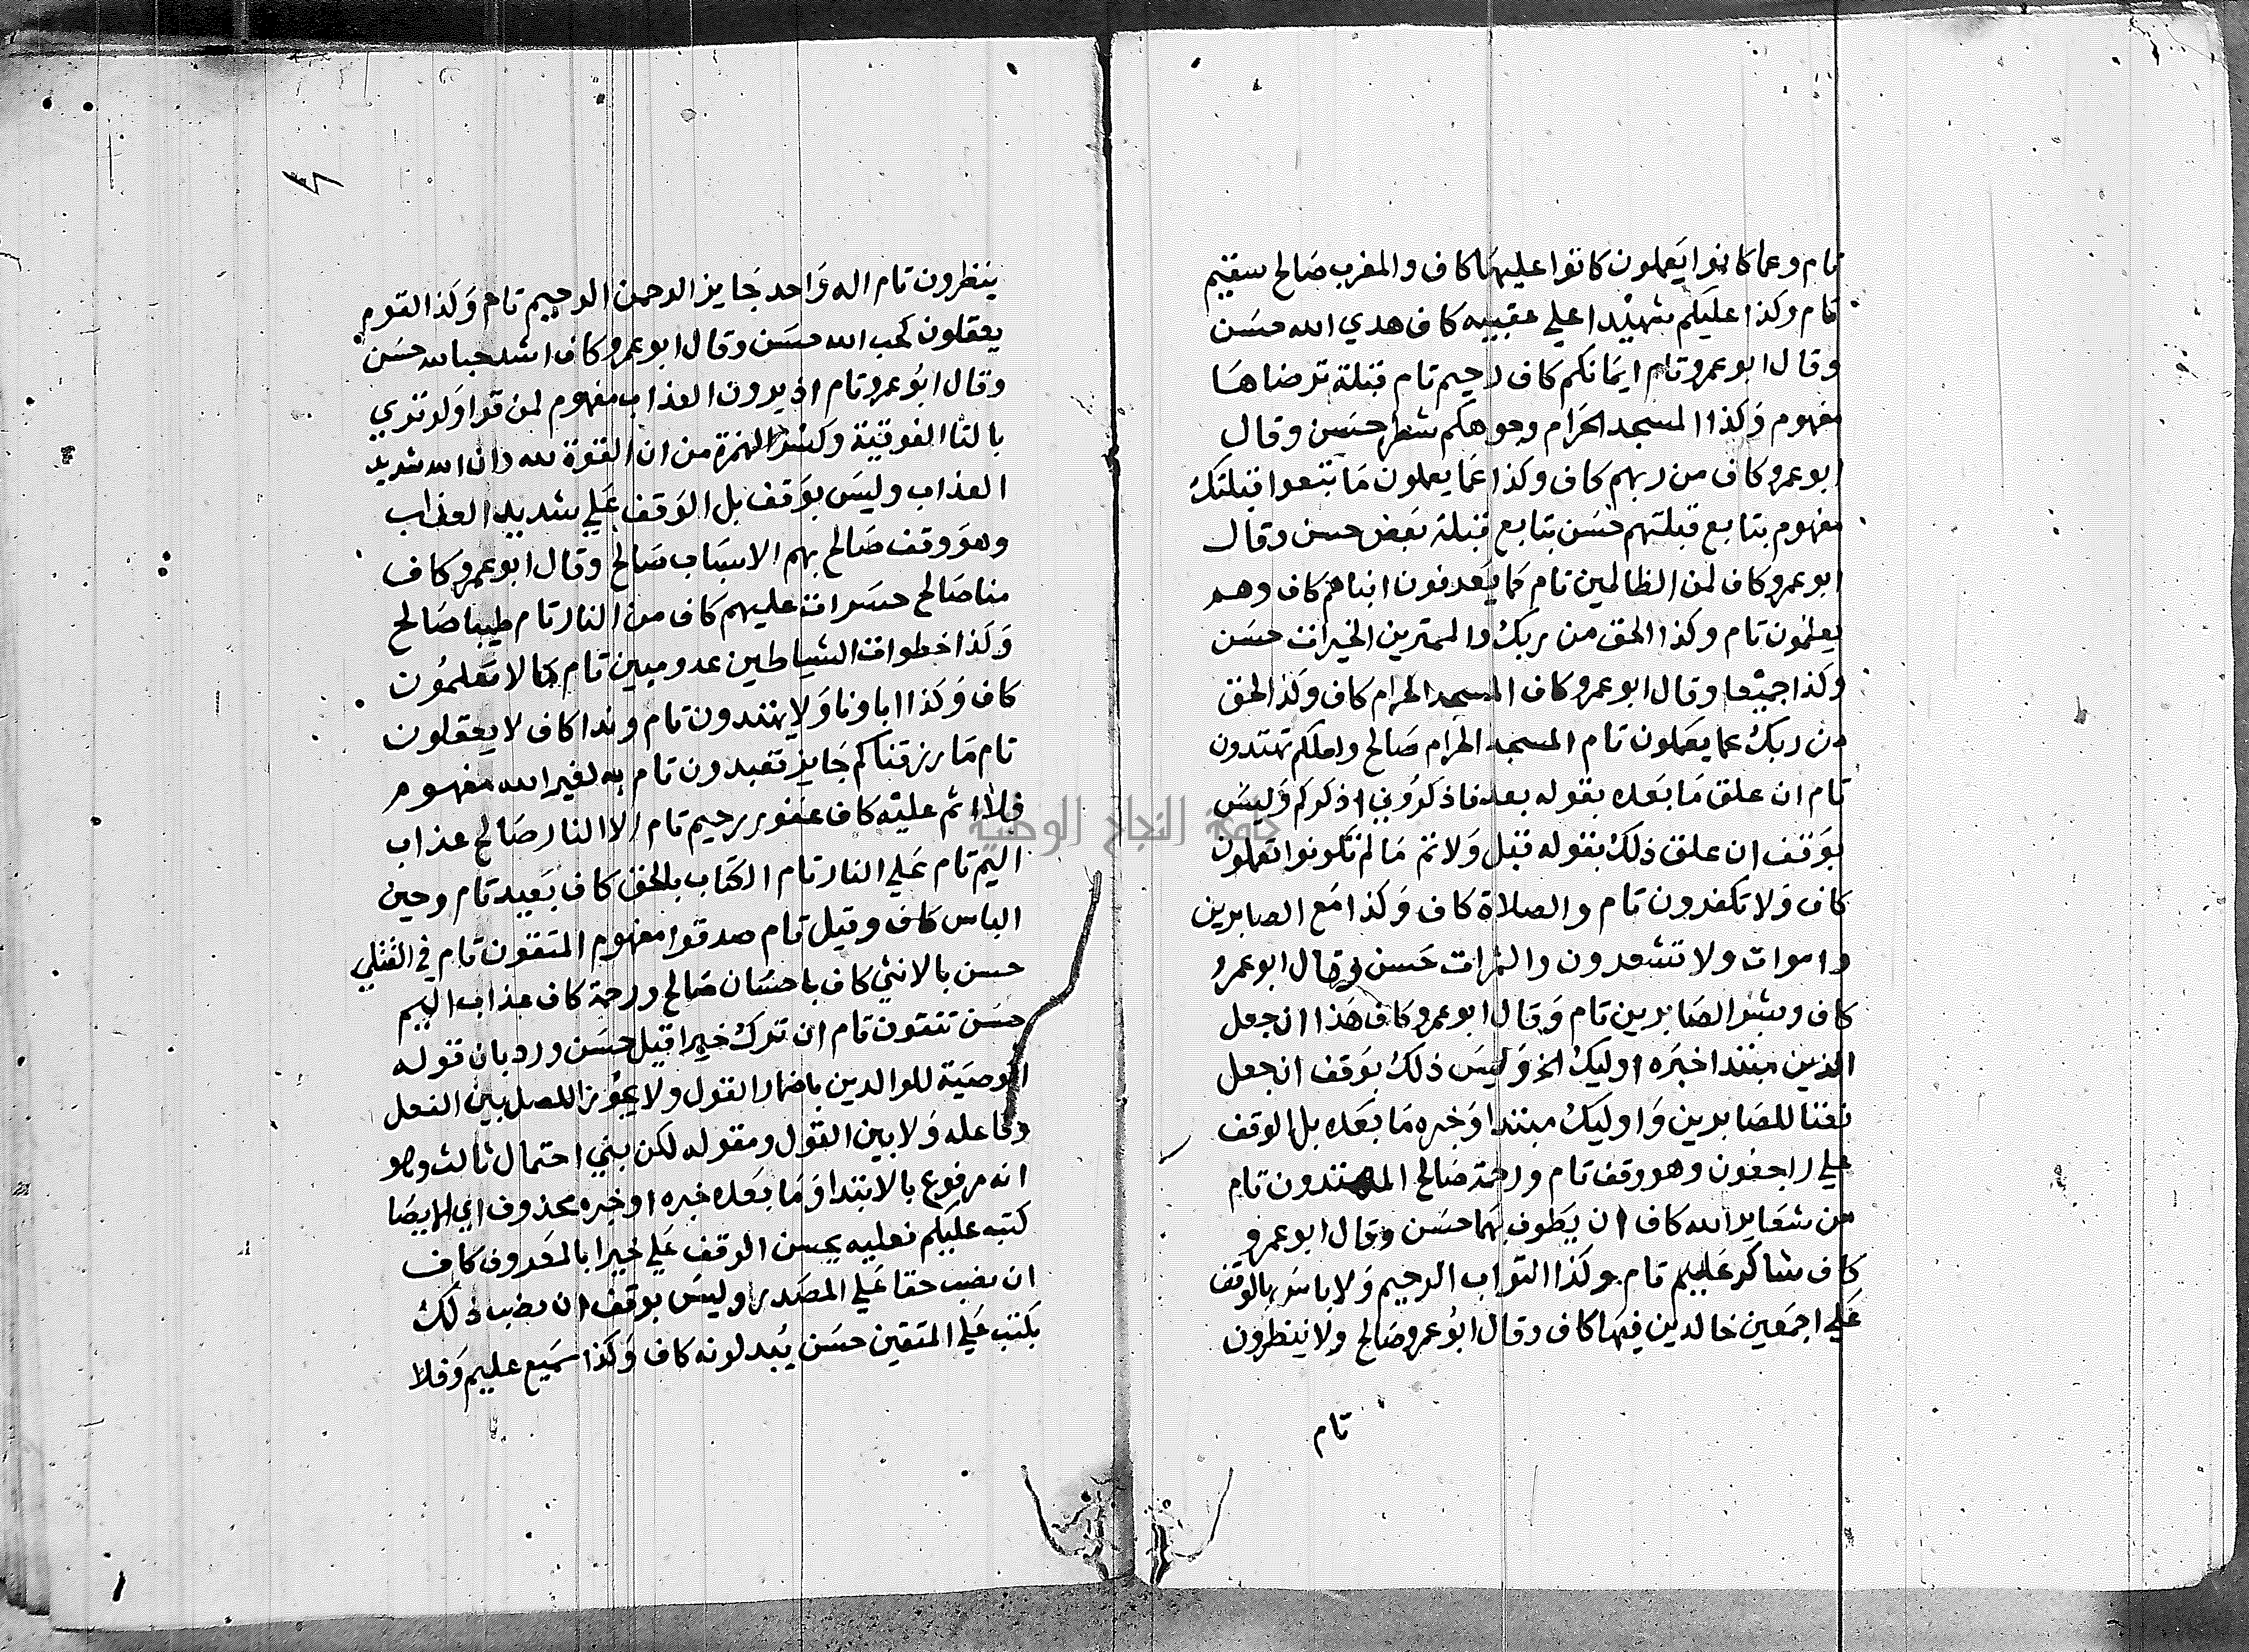 تام وعما كانوا يعملون كانوا عليها كاف والمغرب صالح مستقيم
تام وكذا عليكم شهيدا على عقبيه كاف هدي الله حسن
وقال ابو عمرو تام ايمانكم كاف رحيم تام قبلة ترضاها
مفهوم وكذا المسجد الحرام وجوهكم شطره حسن وقال
ابو عمرو كاف من ربهم كاف وكذا عما يعملون ما تبعوا قبلتك
مفهوم بتابع قبلتهم حسن بتابع قبلة بعض حسن وقال
ابو عمرو كاف لمن الظالمين تام كما يعرفون ابناهم كاف وهم
يعلمون تام وكذا الحق من ربك والممترين الخيرات حسن
وكذا جميعا وقال ابو عمرو كاف المسجد الحرام كاف وكذا للحق
من ربك عما يعملون تام المسجد الحرام صالح ولعلكم تهتدون
تام ان علق ما بعده بقوله بعد فاذكروني اذكركم وليس
بوقف ان علق ذلك بقوله قبل ولاتم ما لم تكونوا تعلمون
كاف ولا تكفرون تام والصلاة كاف وكذا مع الصابرين
واموات ولا تشعرون والثمرات حسن وقال ابو عمرو
كاف وبشر الصابرين تام وقال ابو عمرو كاف هذا ان جعل
الذين مبتدا خبره اوليك الخ وليس ذلك بوقف ان جعل
نعتا للصابرين واوليك مبتدا وخبره ما بعده بل الوقف
على راجعون وهو وقف تام ورحمة صالح المهتدون تام
من شعاير الله كاف ان يطوف بهما حسن وقال ابو عمرو
كاف شاكر عليم تام وكذا التواب الرحيم ولا باس بالوقف
علي اجمعين خالدين فيها كاف وقال ابو عمرو صالح ولا ينظرون
تام
ينظرون تام اله واحد جايز الرحمن الرحيم تام وكذا لقوم
يعقلون كحب الله حسن وقال ابو عمرو كاف اشد حبا لله حسن
وقال ابو عمرو تام اذ يرون العذاب مفهوم لمن قرا ولو تري
بالتا الفوقية وكسر الهمزة من ان القوة لله وان الله شديد
العذاب وليس بوقف بل الوقف علي شديد العذاب
وهو وقف صالح بهم الاسباب صالح وقال ابو عمرو كاف
منا صالح حسرات عليهم كاف من النار تام طيبا صالح
وكذا خطوات الشياطين عدو مبين تام ما لا تعلمون
كاف وكذا اباونا ولا يهتدون تام وندا كاف لا يعقلون
تام ما رزقناكم جايز تعبدون تام به لغير الله مفهوم
فلا اثم عليه كاف غفور رحيم تام الا النار صالح عذاب
اليم تام علي النار تام الكتاب بالحق كاف بعيد تام وحين
الباس كاف وقيل تام صدقوا مفهوم المتقون تام في القتلي
حسن بالانثي كاف باحسان صالح ورحمة كاف عذاب اليم
حسن تتقون تام ان ترك خيرا قيل حسن ورد بان قوله
الوصية للوالدين باضمار القول ولا يجوز الفصل بين الفعل
وفاعله ولا بين القول ومقوله لكن بقي احتمال ثالث وهو
انه مرفوع بالابتدا وما بعده خبره او خبره محذوف اي الايصا
كتبه عليكم فعليه يحسن الوقف علي خيرا بالمعروف كاف
ان نصب حقا علي المصدر وليس بوقف ان نصب ذلك
بكتب علي المتقين حسن يبدلونه كاف وكذا سميع عليم وفلا